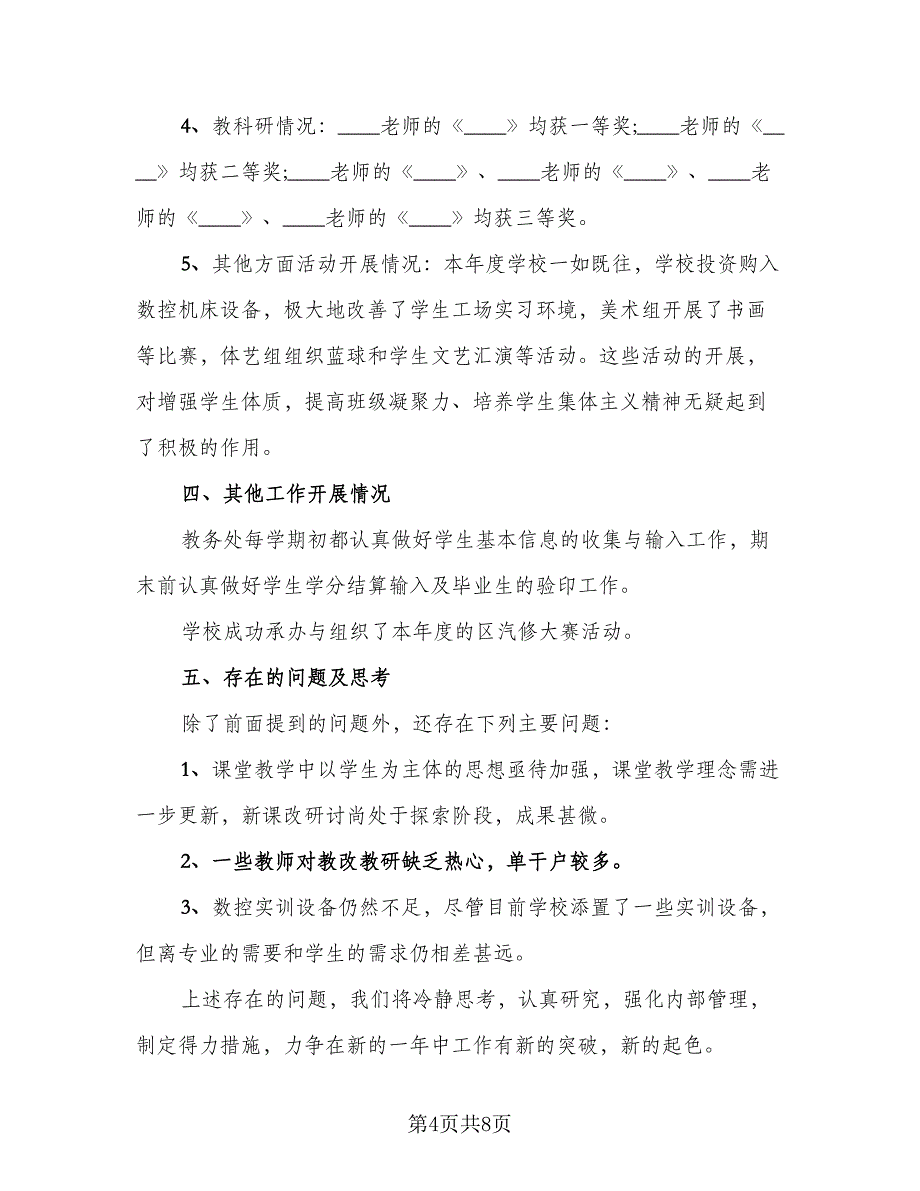 4、教科研情况：____老师的《____》均获一等奖;____老师的《__
__》均获二等奖;____老师的《____》、____老师的《____》、____老
师的《____》、____老师的《____》均获三等奖。
5、其他方面活动开展情况：本年度学校一如既往，学校投资购入
数控机床设备，极大地改善了学生工场实习环境，美术组开展了书画
等比赛，体艺组组织蓝球和学生文艺汇演等活动。这些活动的开展，
对增强学生体质，提高班级凝聚力、培养学生集体主义精神无疑起到
了积极的作用。
四、其他工作开展情况
教务处每学期初都认真做好学生基本信息的收集与输入工作，期
末前认真做好学生学分结算输入及毕业生的验印工作。
学校成功承办与组织了本年度的区汽修大赛活动。
五、存在的问题及思考
除了前面提到的问题外，还存在下列主要问题：
1、课堂教学中以学生为主体的思想亟待加强，课堂教学理念需进
一步更新，新课改研讨尚处于探索阶段，成果甚微。
2、一些教师对教改教研缺乏热心，单干户较多。
3、数控实训设备仍然不足，尽管目前学校添置了一些实训设备，
但离专业的需要和学生的需求仍相差甚远。
上述存在的问题，我们将冷静思考，认真研究，强化内部管理，
制定得力措施，力争在新的一年中工作有新的突破，新的起色。
第4页共8页